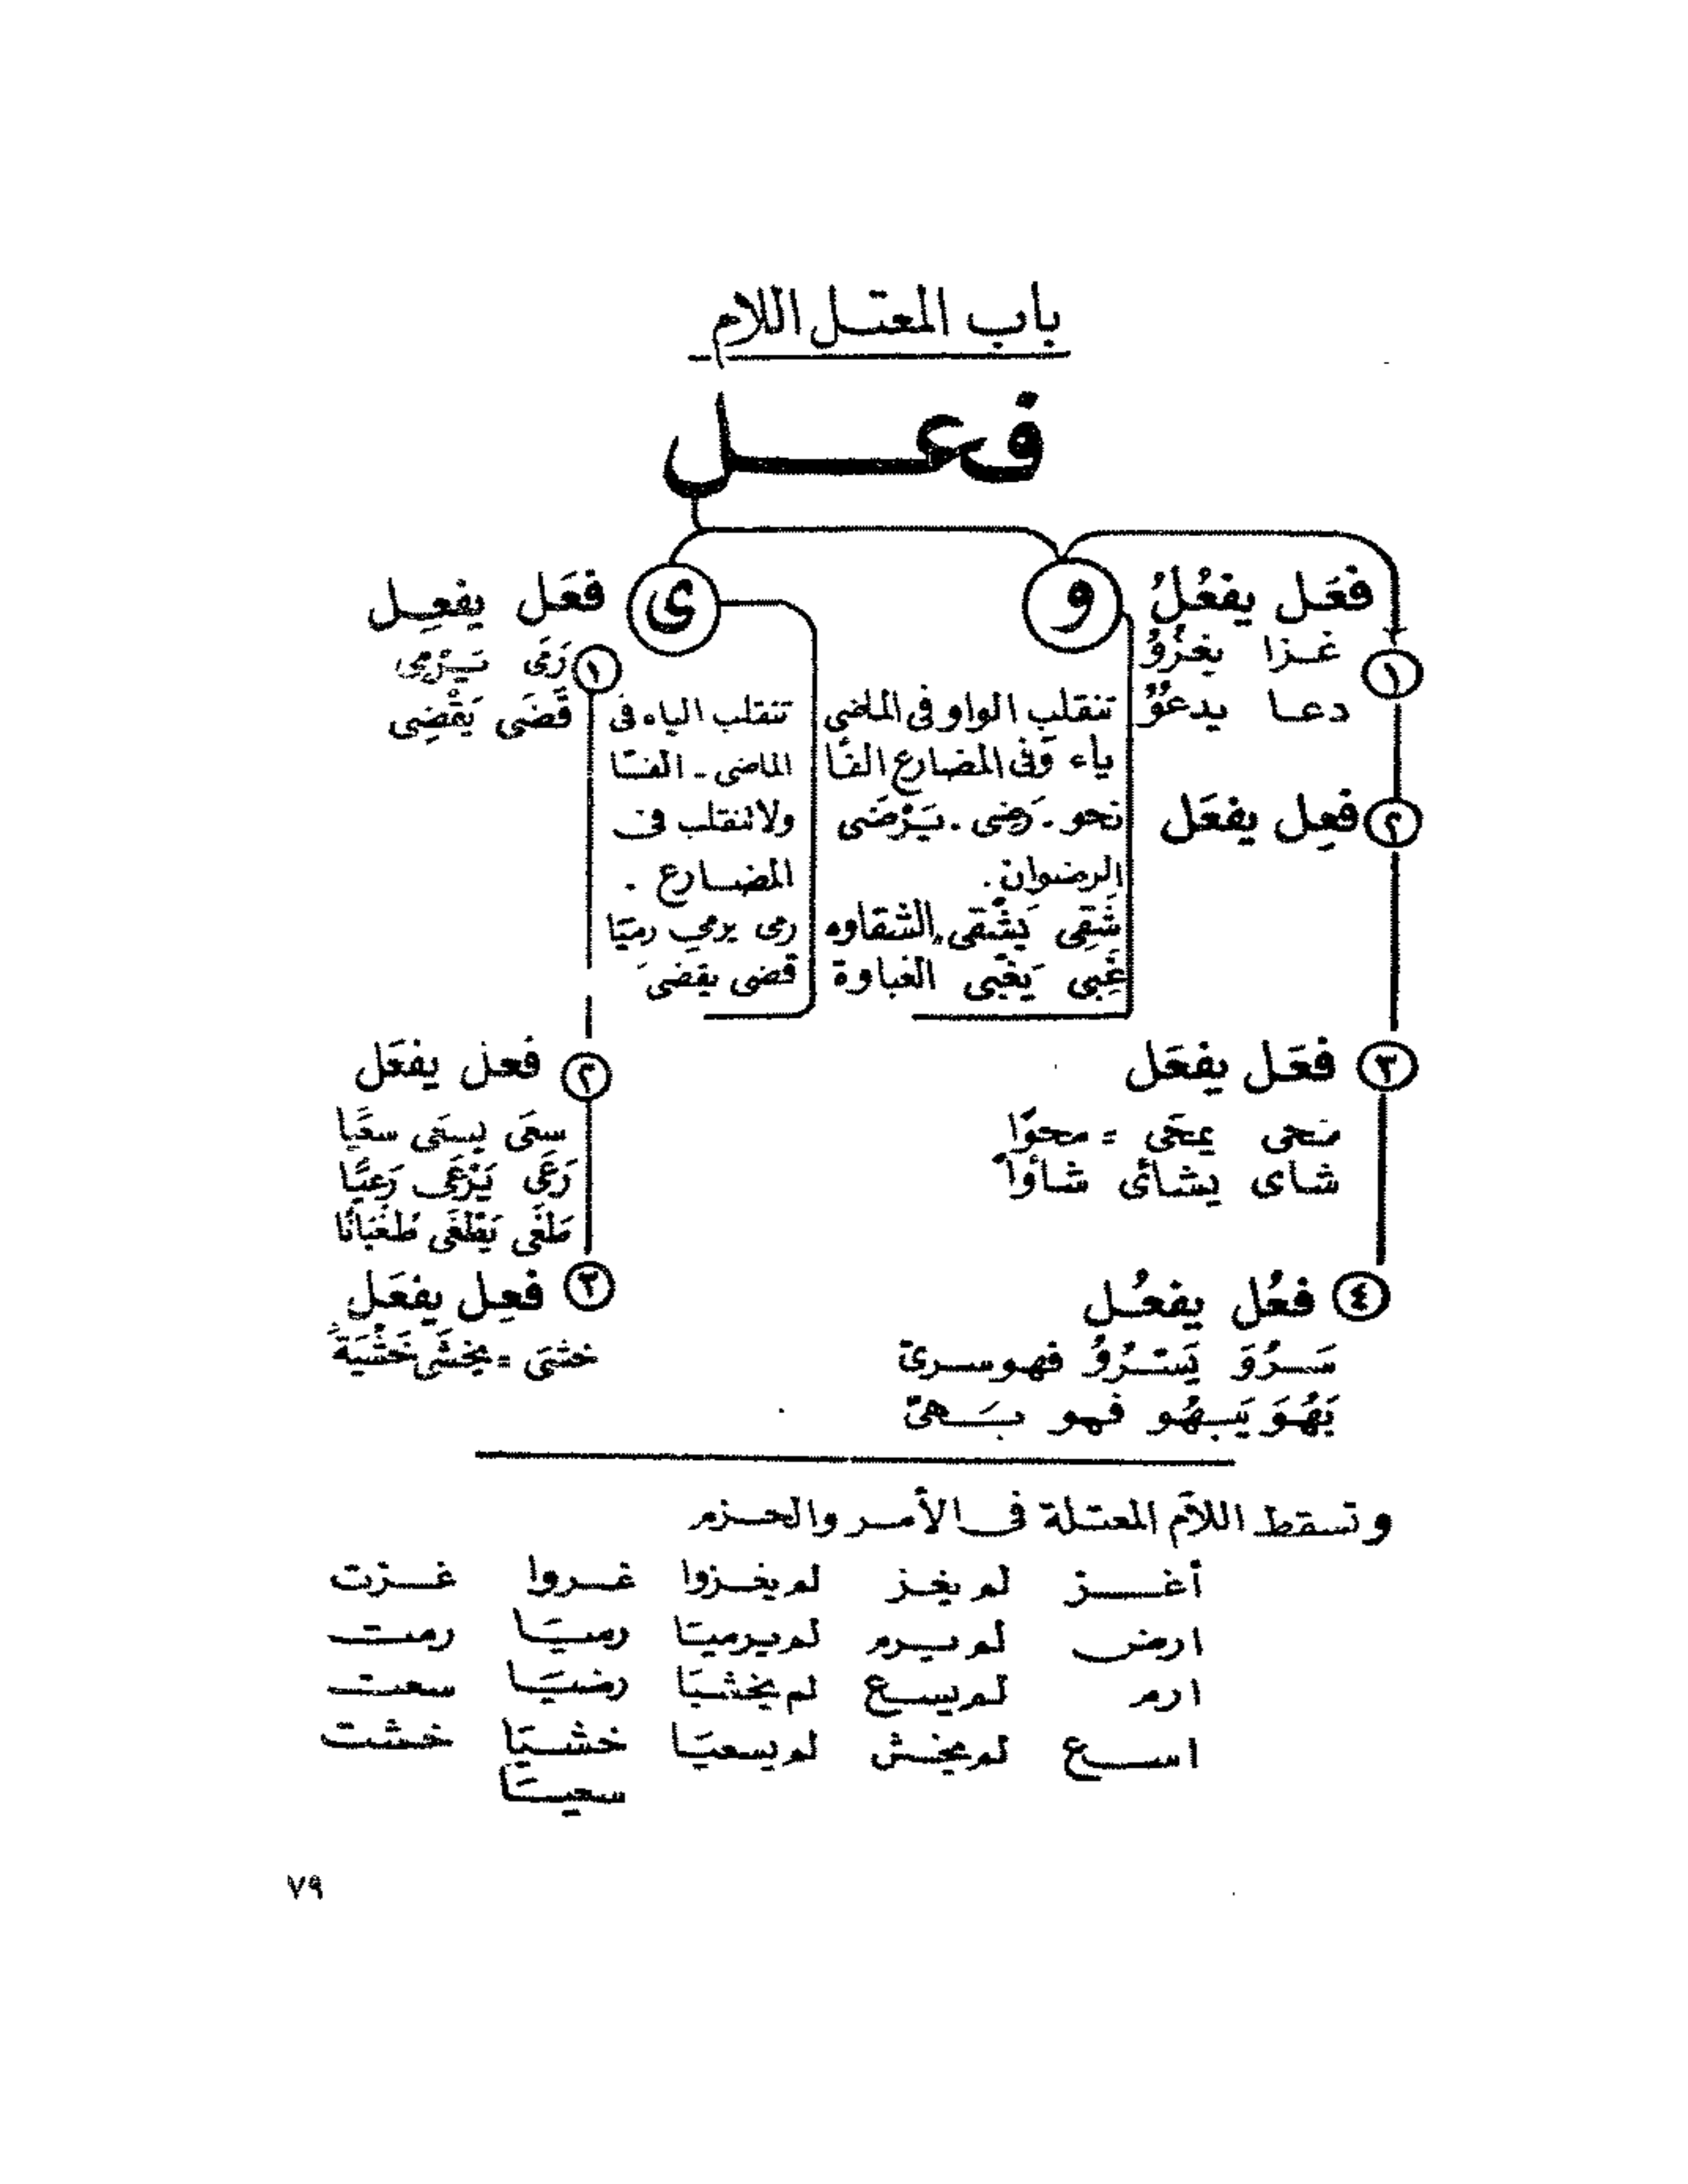 باب المعتل اللام
فعل
و
فعَل يفعُلُ
١
غزا يغزُوُ
دعا يدعُوُ
٢ فعِل يفعَل
تنقلب الواو فى الماضي
ياء وفى المضارع الفًا
نحو - رَضِى - يَرْضَى
الرضوان.
شَقِى يَشْقى الشقاوه
غَبِى يَغْبَى الغباوة
٣ فعَل يفعَل
محى يمحَى = محوًا
شاى يشائى شاؤًا
٤ فعُل يفعُل
سَرُوَ يَسْرُوُ فهو سرىّ
بَهُوَ يَبهُو فهو بَهىّ
ى
فعَل يفعِل
١ رَمَى يَرْمِى
قَضَى يَقْضِى
تنقلب الياء فى
الماضى - الفًا
ولا تنقلب فى
المضارع .
رمى يرمي رميًا
قضى يقضى
٢ فعل يفعَل
سعَى يسعَى سعيًا
رَعَى يَرْعَى رَعيًا
طَغَى يَطْغَى طُغيَانًا
٣ فعِل يفعَل
خشى = يخشَى خَشْيَةً
وتسقط اللام المعتلة فى الأمر والجزم
أغز لم يغز لم يغزوا غزوا غزت
ارض لم يرم لم يرميَا رميَا رمت
ارم لم يسع لم يخشيَا رضيَا سعت
اسع لم يخش لم يسعيَا خشيَا خشت
سعيَا
٧٩